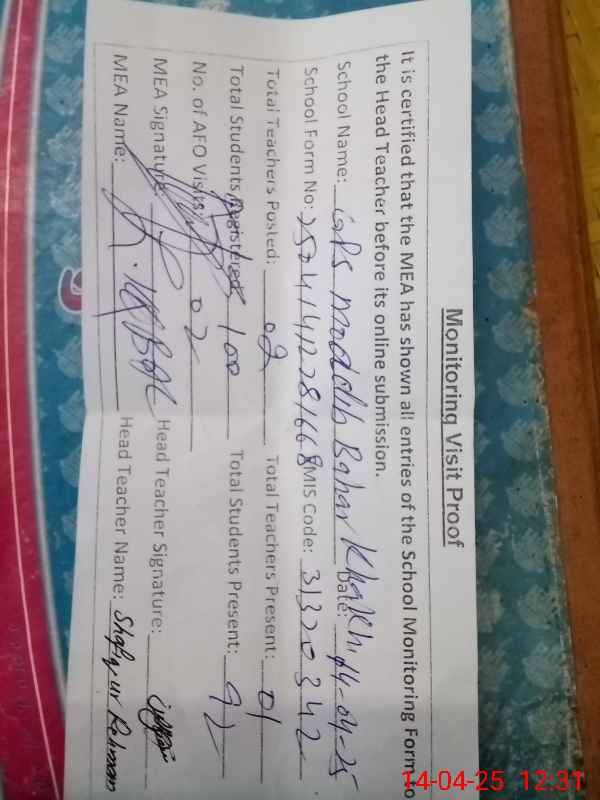 Monitoring Visit Proof
It is certified that the MEA has shown all entries of the School Monitoring Form to
the Head Teacher before its online submission.
School Name: GPS Moddih Bahar Khakhi Date: 14-04-25
School Form No: 250414122816688 MIS Code: 31320342
Total Teachers Posted: 02 Total Teachers Present: 01
Total Students Registered 100 Total Students Present: 92
No. of AFO Visits 02
MEA Signature Head Teacher Signature:
MEA Name: Head Teacher Name: Shafiq ur Rehman
14-04-25 12:31